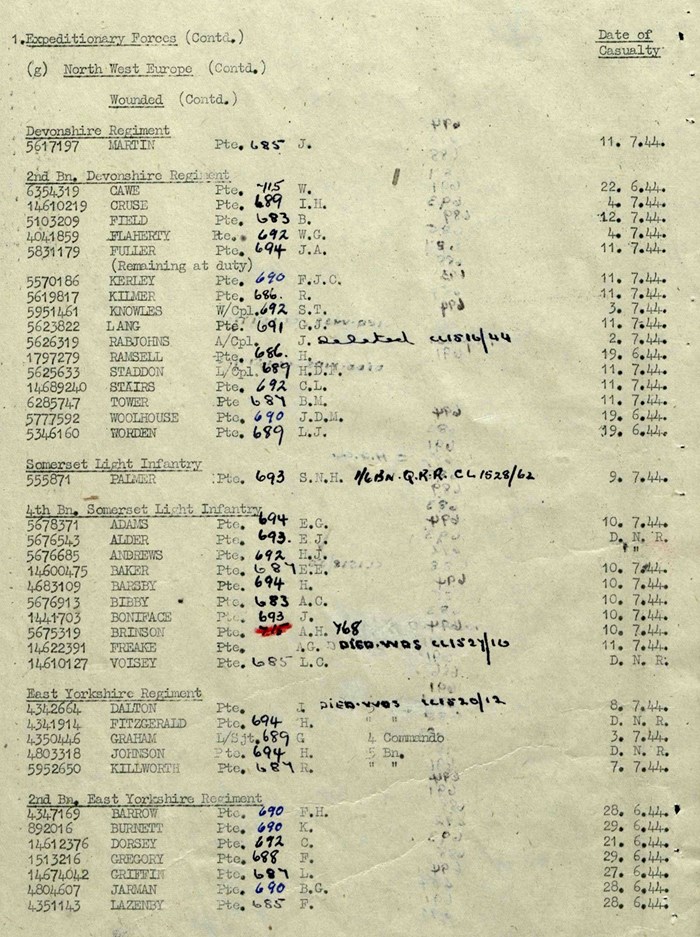 1.Expeditionary Forces (Contd.) Date of
Casualty
(g) North West Europe (Contd.)
Wounded (Contd.)
Devonshire Regiment
5617197 MARTIN Pte. 685 J. 11. 7.44.
2nd Bn. Devonshire Regiment
6354319 CAWE Pte. 715 W. 22. 6.44.
14610219 CRUSE Pte. 689 I.H. 4. 7.44.
5103209 FIELD Pte. 683 B. 12. 7.44.
4041859 FLAHERTY Pte. 692 W.G. 4. 7.44.
5831179 FULLER Pte. 694 J.A. 11. 7.44.
(Remaining at duty)
5570186 KERLEY Pte. 690 F.J.C. 11. 7.44.
5619817 KILMER Pte. 686. R. 11. 7.44.
5951461 KNOWLES W/Cpl. 692 S.T. 3. 7.44.
5623822 LANG Pte. 691 G.J. 11. 7.44.
5626319 RABJOHNS A/Cpl. J. Deleted CL1516/44 2. 7.44.
1797279 RAMSELL Pte. 686. H. 19. 6.44.
5625633 STADDON L/Cpl. 689 H.D.T. 11. 7.44.
14689240 STAIRS Pte. 692 C.L. 11. 7.44.
6285747 TOWER Pte. 687 B.M. 11. 7.44.
5777592 WOOLHOUSE Pte. 690 J.D.M. 19. 6.44.
5346160 WORDEN Pte. 689 L.J. 19. 6.44.
Somerset Light Infantry
555871 PALMER Pte. 693 S.N.H. 1/6 BN. Q.R.R. CL1528/62 9. 7.44.
4th Bn. Somerset Light Infantry
5678371 ADAMS Pte. 694 E.G. 10. 7.44.
5676543 ALDER Pte. 693. E.J. D. N. R.
5676685 ANDREWS Pte. 692 H.J. " "
14600475 BAKER Pte. 687 E.E. 10. 7.44.
4683109 BARSBY Pte. 694 H. 10. 7.44.
5676913 BIBBY Pte. 683 A.C. 10. 7.44.
1441703 BONIFACE Pte. 693 J. 10. 7.44.
5675319 BRINSON Pte. A.H. 768 10. 7.44.
14622391 FREAKE Pte. A.G. DIED.WDS CL1527/10 11. 7.44.
14610127 VOISEY Pte. 685 L.C. D. N. R.
East Yorkshire Regiment
4342664 DALTON Pte. J. DIED.WDS CL1520/12 8. 7.44.
4341914 FITZGERALD Pte. 694 H. " " D. N. R.
4350446 GRAHAM L/Sjt. 689 G 4 Commando 3. 7.44.
4803318 JOHNSON Pte. 694 H. 5 Bn. D. N. R.
5952650 KILLWORTH Pte. 687 R. " " 7. 7.44.
2nd Bn. East Yorkshire Regiment
4347169 BARROW Pte. 690 F.H. 28. 6.44.
892016 BURNETT Pte. 690 K. 29. 6.44.
14612376 DORSEY Pte. 692 C. 21. 6.44.
1513216 GREGORY Pte. 688 F. 29. 6.44.
14674042 GRIFFIN Pte. 687 L. 27. 6.44.
4804607 JARMAN Pte. 690 B.G. 28. 6.44.
4351143 LAZENBY Pte. 685 F. 28. 6.44.